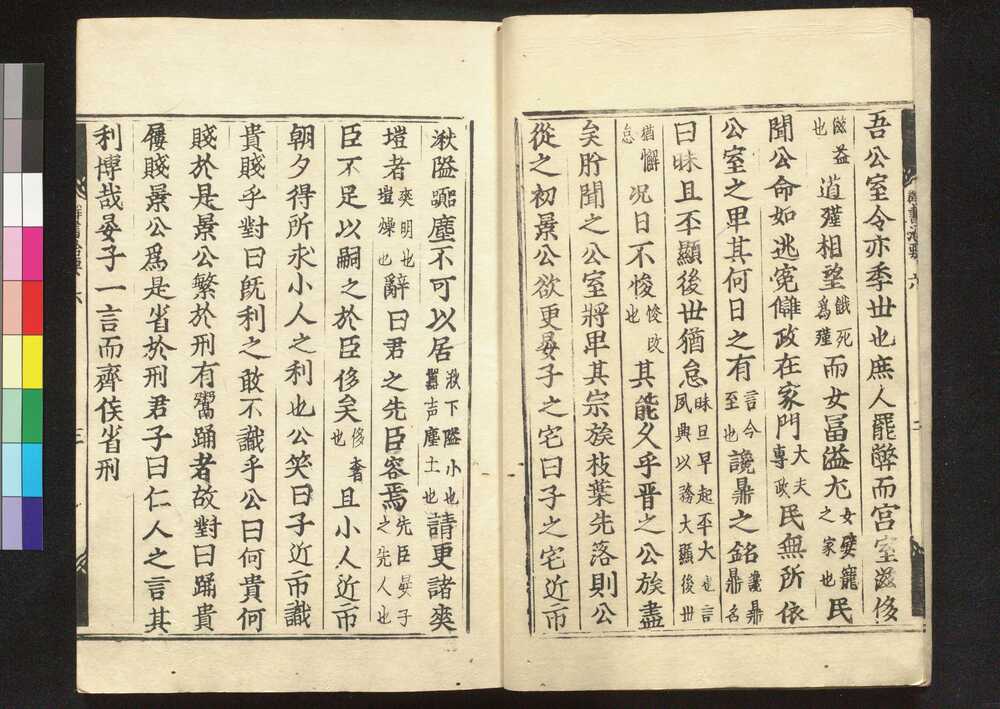 吾公室令亦季世也庶人罷弊而宫室滋侈
滋益也道殣相望餓死爲殣而女冨溢尤女嬖寵之家也民
聞公命如逃寇讎政在家門大夫專政民無所依
公室之卑其何日之有言今至也讒鼎之銘讒鼎鼎名
曰昧旦丕顯後世猶怠昧旦早起丕大也言夙興以務大顯後世
猶懈怠况日不悛悛改也其能久乎晋之公族盡
矣肸聞之公室將卑其宗族枝葉先落則公
從之初景公欲更晏子之宅曰子之宅近市
湫隘嚻塵不可以居湫下隘小也嚻声塵土也請更諸爽
塏者爽明也塏燥也辭曰君之先臣容焉先臣晏子之先人也
臣不足以嗣之於臣侈矣侈奢也且小人近市
朝夕得所求小人之利也公笑曰子近市識
貴賤乎對曰既利之敢不識乎公曰何貴何
賤於是景公繁於刑有鬻踊者故對曰踊貴
屨賤景公爲是省於刑君子曰仁人之言其
利博哉晏子一言而齊侯省刑
群書治要六
二
三